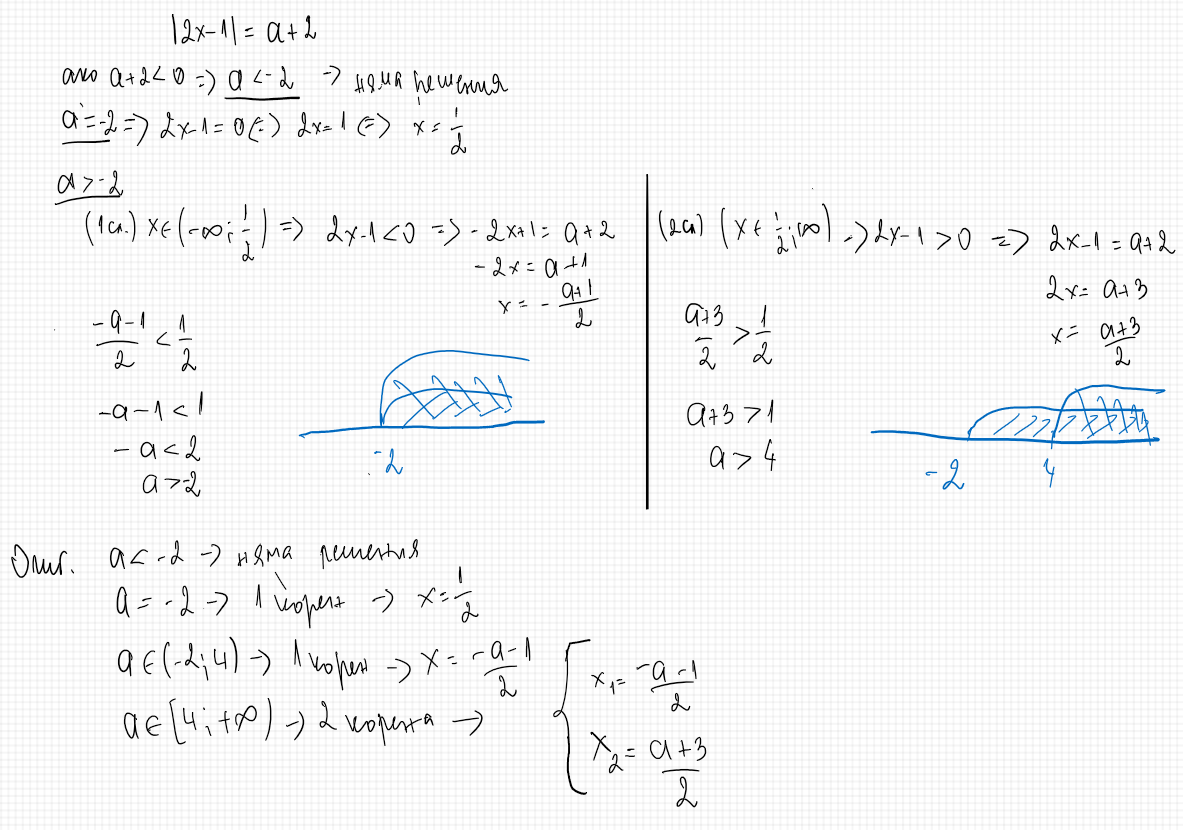 |2x-1| = a+2
ако a+2<0 => a<-2 -> няма решения
a=-2 => 2x-1=0 <=> 2x=1 <=> x=1/2
a>-2
(1сл.) x∈(-∞; 1/2) => 2x-1<0 => -2x+1=a+2
-2x=a+1
x=-(a+1)/2
(-a-1)/2 < 1/2
-a-1<1
-a<2
a>-2
-2
(2сл) (x∈ 1/2; ∞) -> 2x-1>0 => 2x-1=a+2
2x=a+3
x=(a+3)/2
(a+3)/2 > 1/2
a+3>1
a>4
-2 4
Отг. a<-2 -> няма решения
a=-2 -> 1 корен -> x=1/2
a∈(-2;4) -> 1 корен -> x=(-a-1)/2
a∈[4;+∞) -> 2 корена -> { x₁=(-a-1)/2
x₂=(a+3)/2